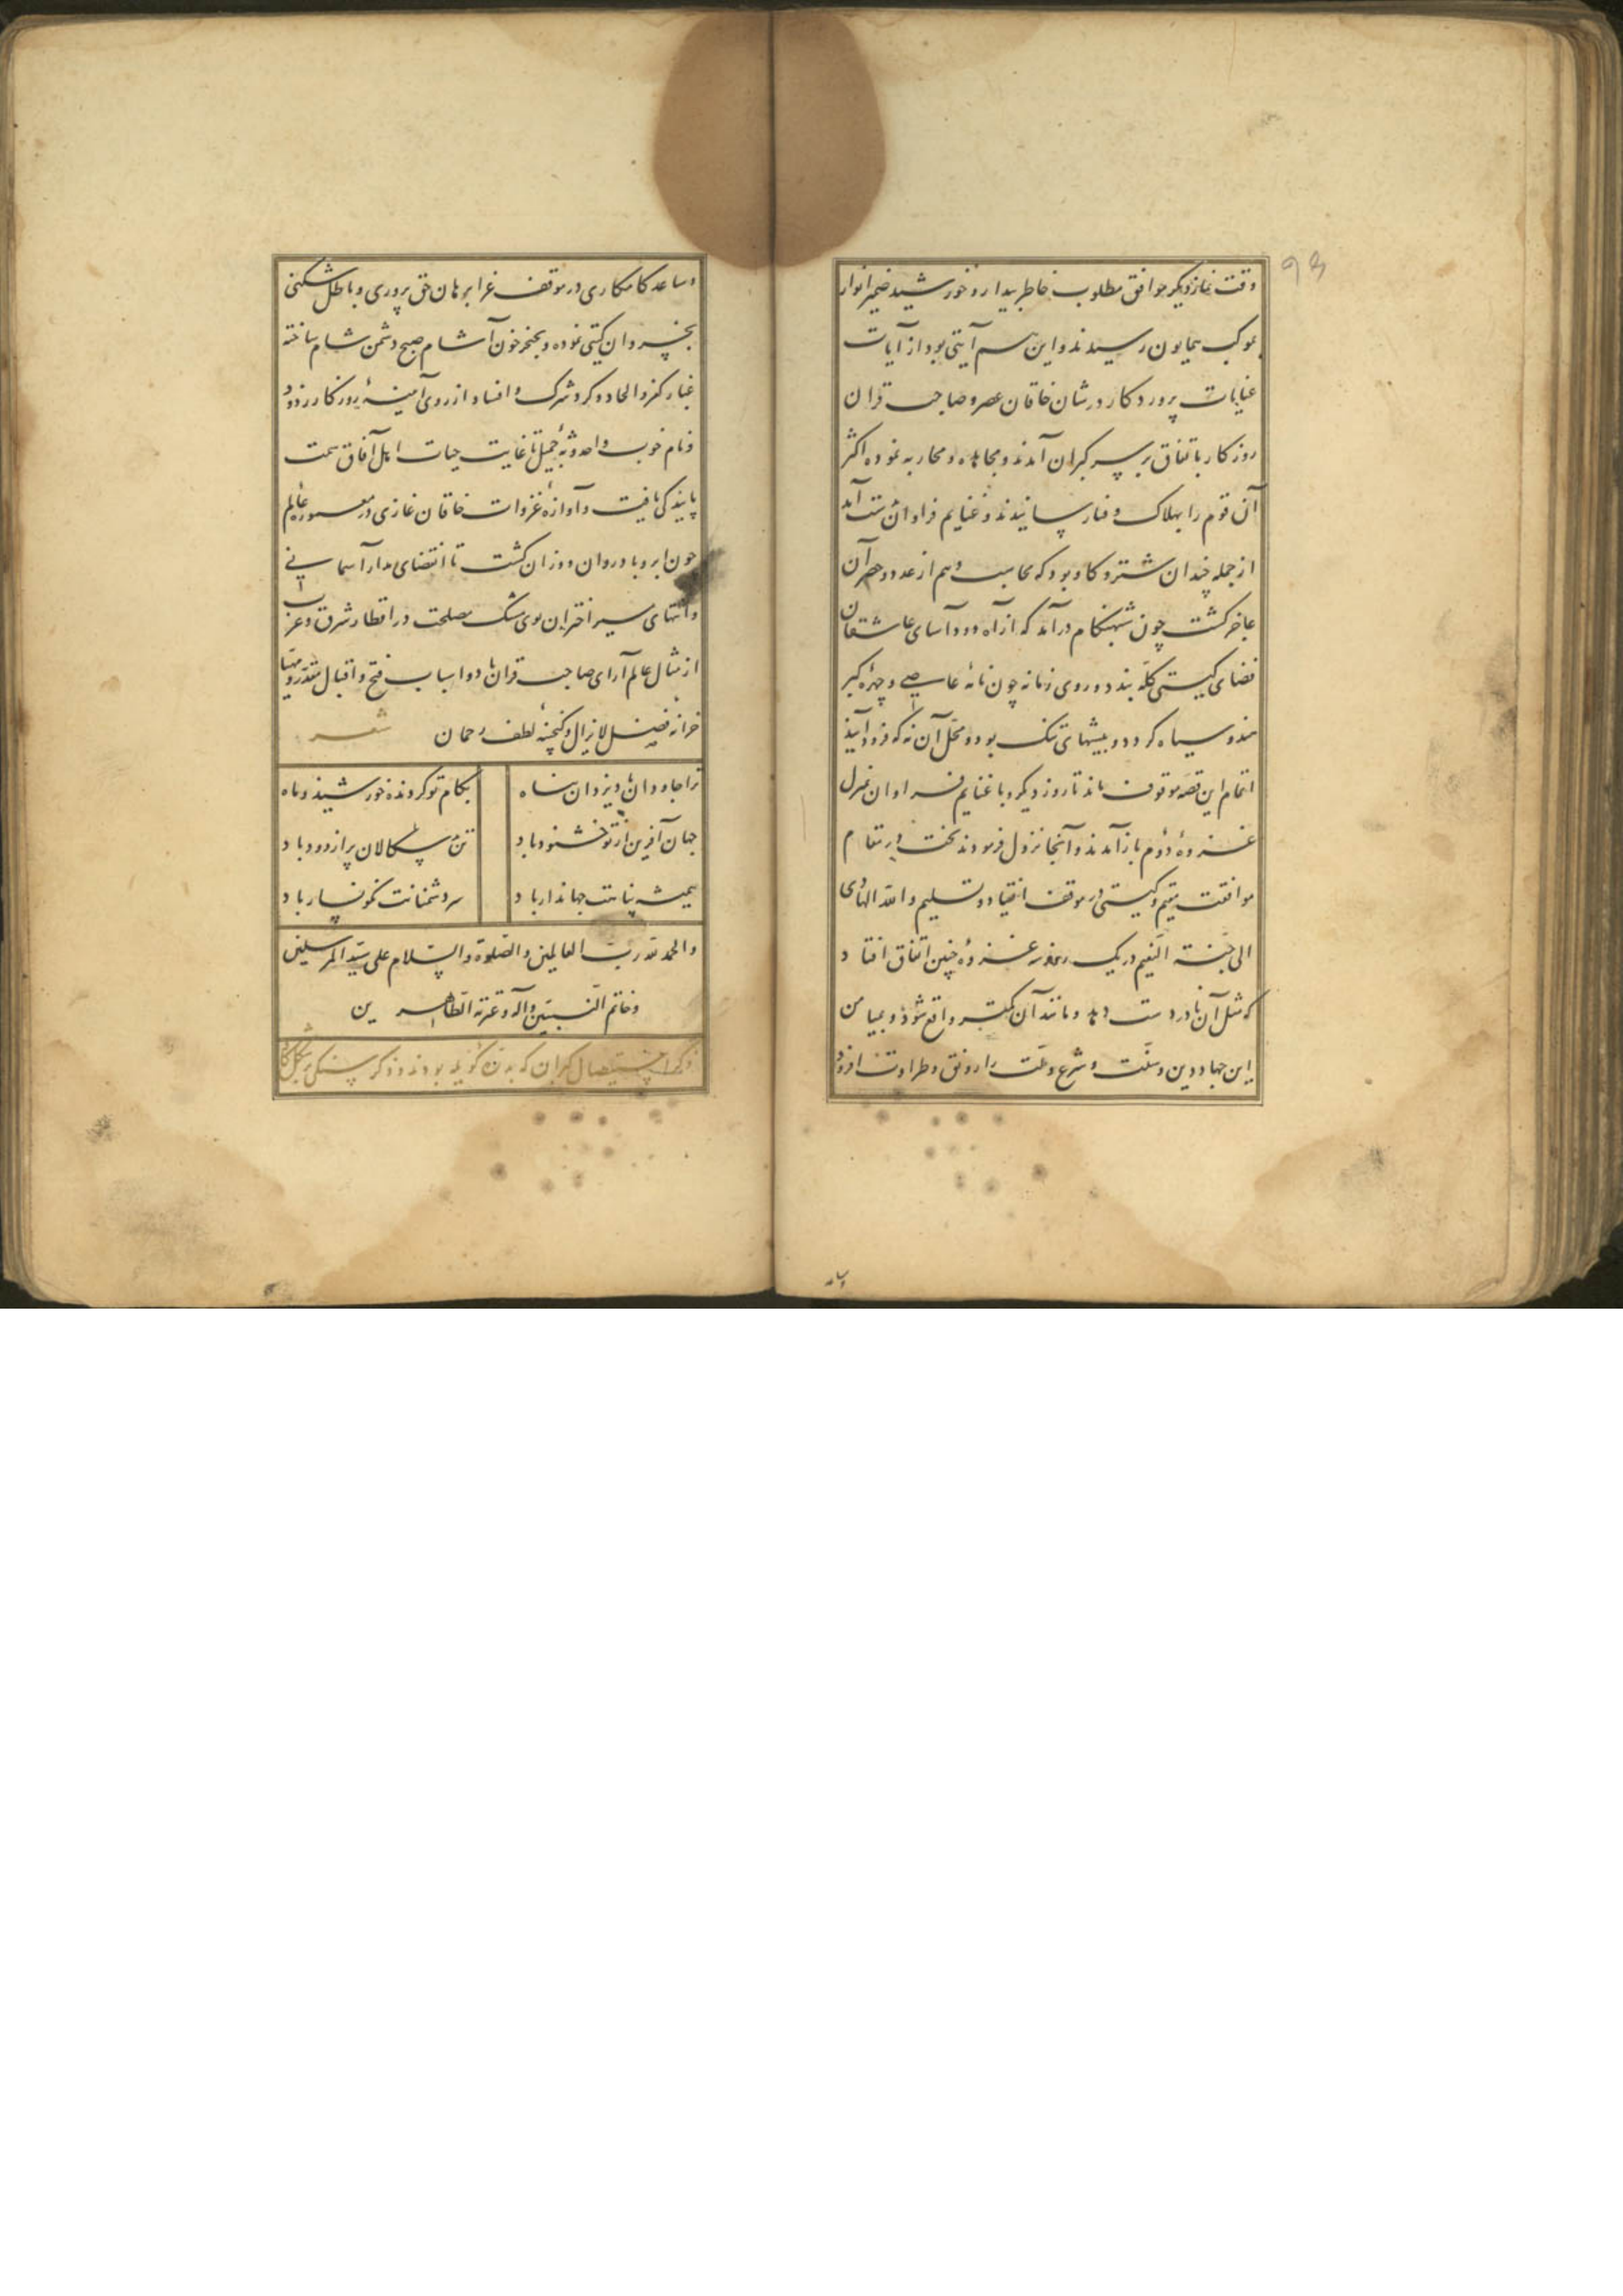 ۹۳
وقت نماز دیکر موافق مطلوب خاطر بیدار و خورشید ضمیر انوار
بموکب همایون رسیدند و این هم آیتی بود از آیات
عنایات پروردکار در شان خاقان عصر و صاحب قران
روزکار باتفاق بر سر کبران آمدند و مجاهده و محاربه نموده اکثر
آن قوم را بهلاک و فنا رسانیدند و غنایم فراوان بدست آمد
از جمله چندان شتر و کاو بود که محاسب وهم از عدد و حصر آن
عاجز کشت چون شبهنکام درآمد که از آه دودآسای عاشقان
فضای کیتی کله بندد و روی زمانه چون نامهٔ عاصی و چهرهٔ کبر
هندو سیاه کردد و بیشهای تنک بود و محل آن نه که فرود آیند
اتمام این قصه موقوف ماند تا روز دیکر و با غنایم فراوان بمنزل
غزوهٔ دوم باز آمدند و آنجا نزول فرمودند بخت در مقام
موافقت مقیم و کیتی در موقف انقیاد و تسلیم والله الهادی
الی جنة النعیم در یک روز سه غزوه چنین اتفاق افتاد
که مثل آن نادر دست دهد و مانند آن کمتر واقع شود و بمیامن
این جهاد دین و سنّت و شرع و ملّت را رونق و طراوت افزود
وساعد کامکاری در موقف غرا برهان حق پروری و باطل شکنی
بخسروان کیتی نموده و بخنجر خون آشام صبح دشمن شام ساخته
غبار کفر و الحاد و کرد شرک و افساد از روی آمینهٔ روزکار زدود
و نام خوب و احدوثهٔ جمیل تا غایت حیات اهل آفاق سمت
پایندکی یافت و آوازهٔ غزوات خاقان غازی در معمورهٔ عالم
چون ابر و باد روان و وزان کشت تا انقضای مدار آسمانی
وانتهای سیر اختران بوی مشک مصلحت در اقطار شرق و غرب
از مثال عالم آرای صاحب قران باد و اسباب فتح و اقبال مقدر و مهیا
خزانهٔ فضل لایزال و کنجینهٔ لطف رحمان شعر
ترا جاودان باد یزدان پناه بکام تو کردنده خورشید و ماه
جهان آفرین از تو خشنود باد تن بدسکالان پر از دود باد
همیشه پناهت جهاندار باد سر دشمنانت نکونسار باد
والحمد لله رب العالمین والصلوة والسلام علی سید المرسلین
وخاتم النبیین وآله وعترته الطاهرین
ذکر استیصال کبران که بدره کوپله بودند و ذکر سنکی بر شکل کاو